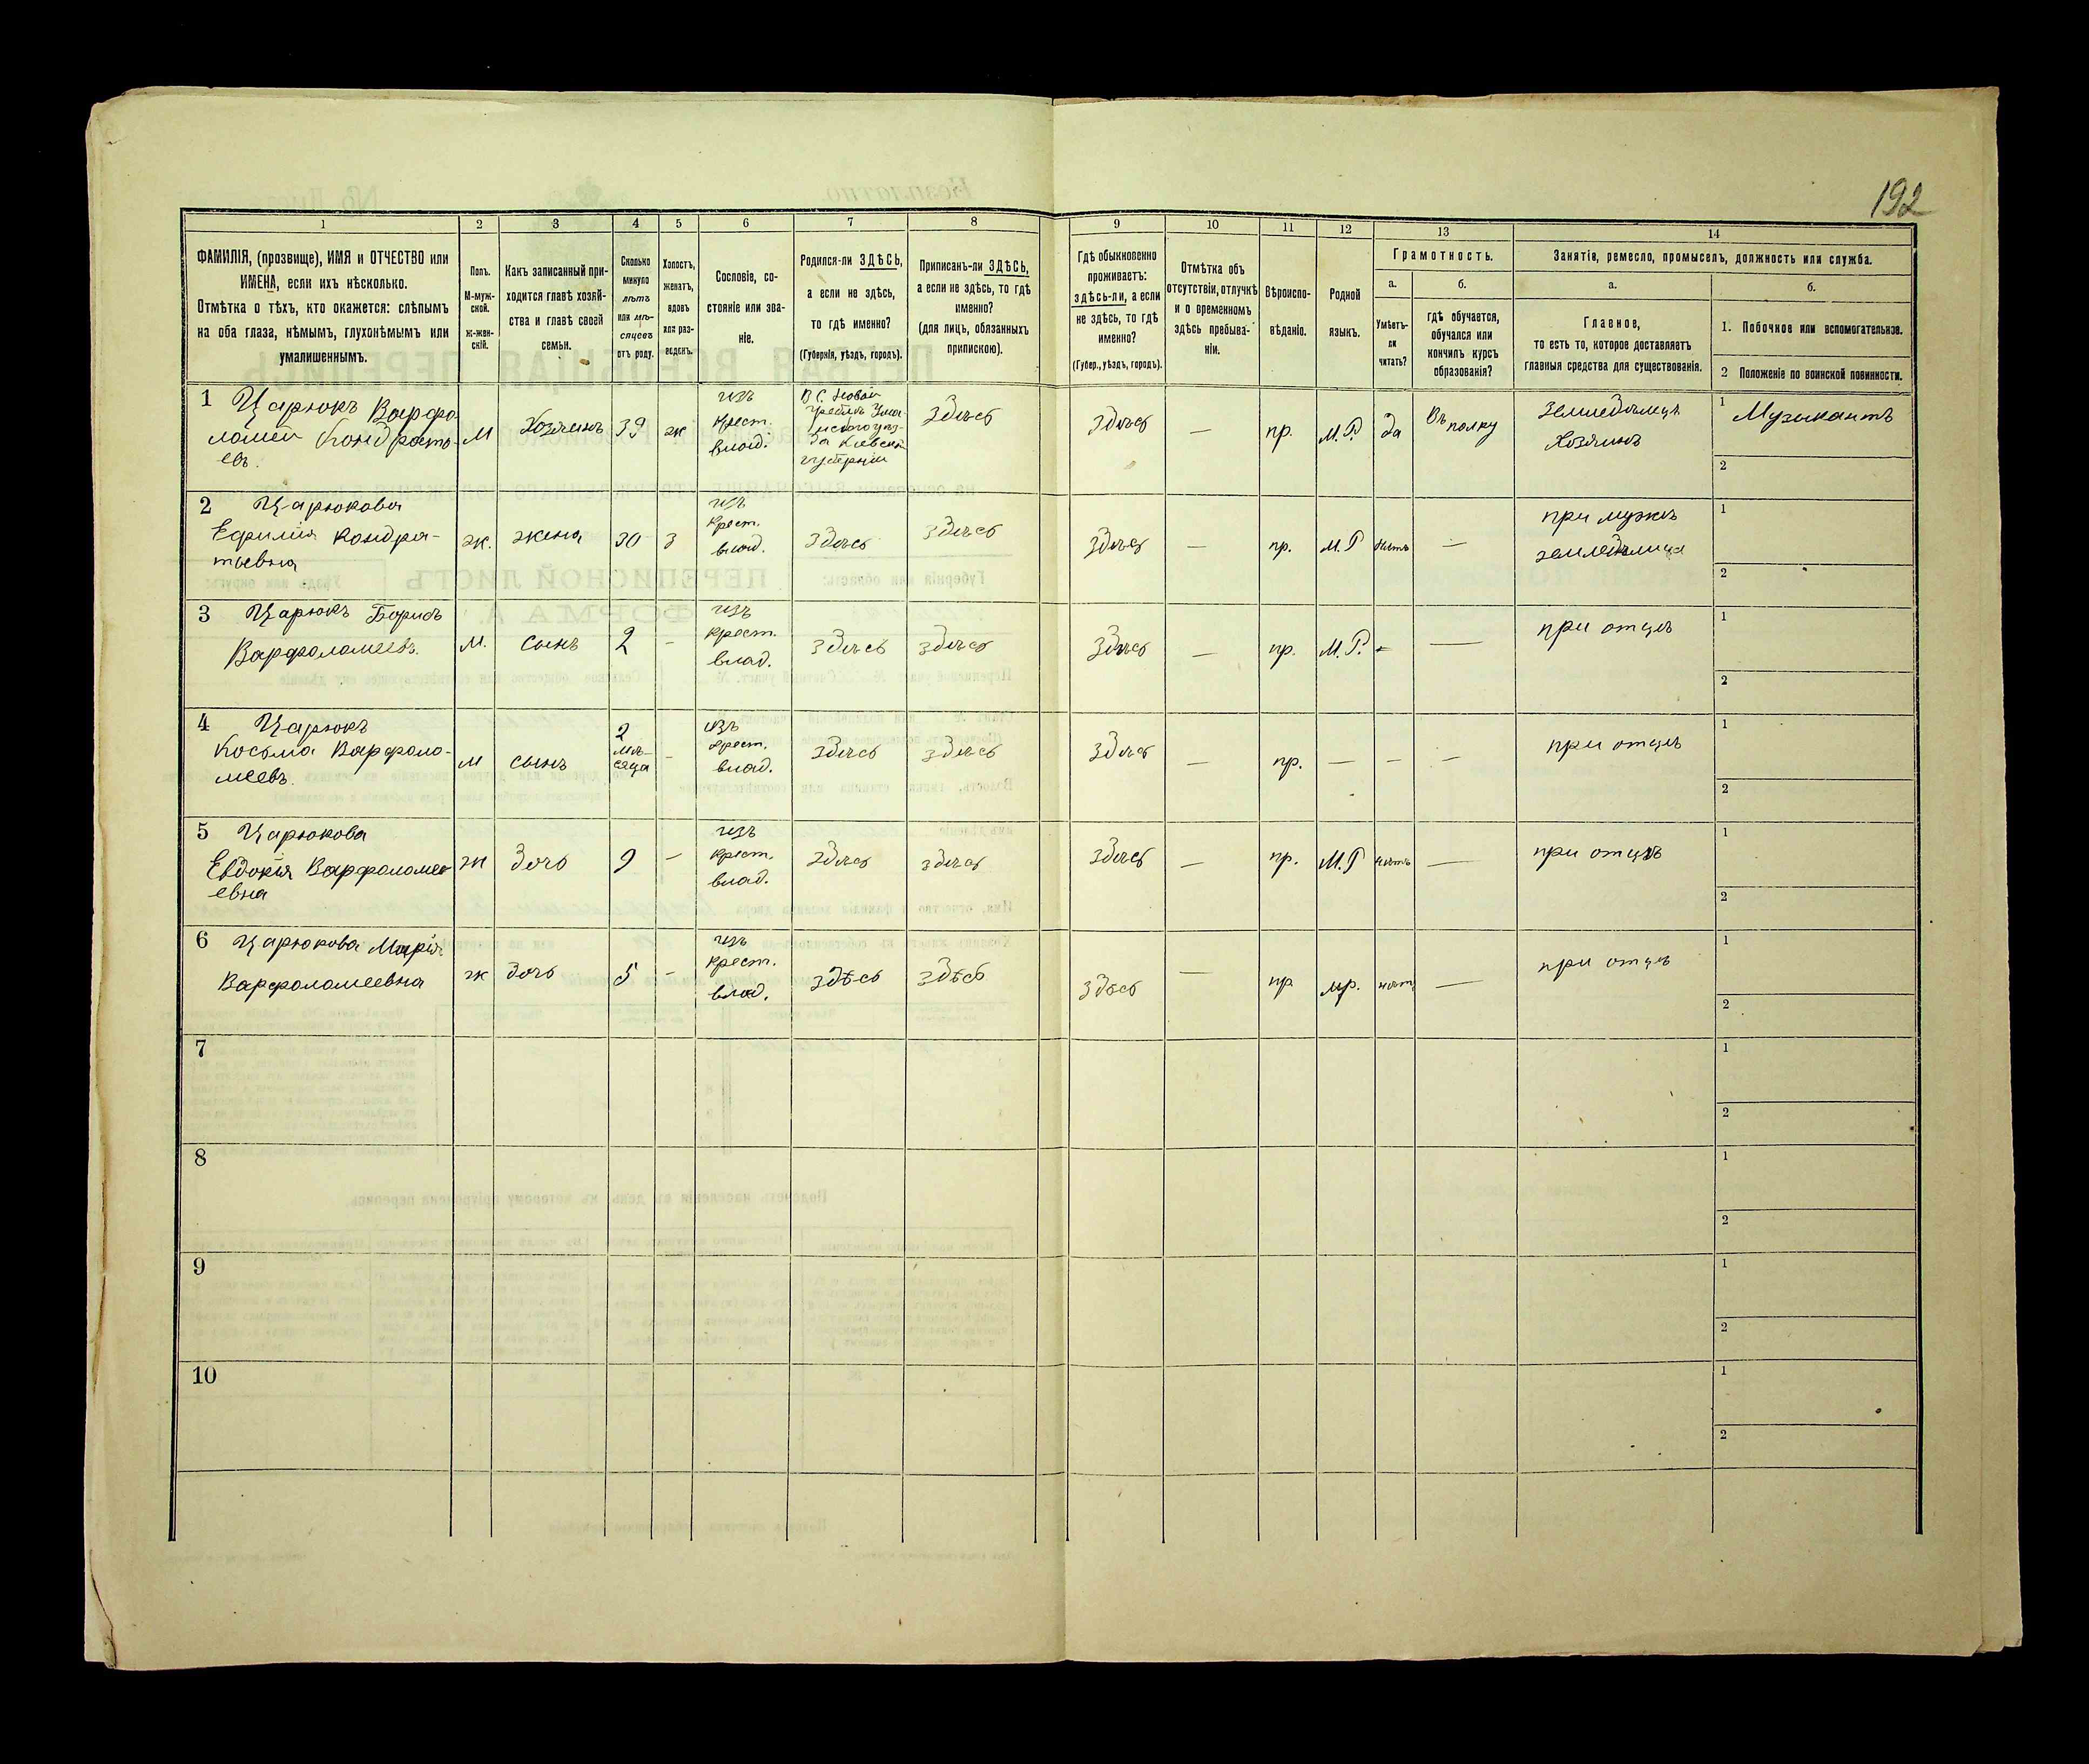 192
1 2 3 4 5 6 7 8 9 10 11 12 13 14
ФАМИЛІЯ, (прозвище), ИМЯ и ОТЧЕСТВО или
ИМЕНА, если ихъ нѣсколько.
Отмѣтка о тѣхъ, кто окажется: слѣпымъ
на оба глаза, нѣмымъ, глухонѣмымъ или
умалишеннымъ.
Полъ.
М-муж-
ской.
Ж-жен-
скій.
Какъ записанный при-
ходится главѣ хозяй-
ства и главѣ своей
семьи.
Сколько
минуло
лѣтъ
или мѣ-
сяцевъ
отъ роду.
Холостъ,
женатъ,
вдовъ
или раз-
веденъ.
Сословіе, со-
стояніе или зва-
ніе.
Родился-ли ЗДѢСЬ,
а если не здѣсь,
то гдѣ именно?
(Губернія, уѣздъ, городъ).
Приписанъ-ли ЗДѢСЬ,
а если не здѣсь, то гдѣ
именно?
(для лицъ, обязанныхъ
припискою).
Гдѣ обыкновенно
проживаетъ:
здѣсь-ли, а если
не здѣсь, то гдѣ
именно?
(Губер., уѣздъ, городъ).
Отмѣтка объ
отсутствіи, отлучкѣ
и о временномъ
здѣсь пребыва-
ніи.
Вѣроиспо-
вѣданіе.
Родной
языкъ.
Грамотность.
а.
Умѣетъ-
ли
читать?
б.
гдѣ обучается,
обучался или
кончилъ курсъ
образованія?
Занятіе, ремесло, промыселъ, должность или служба.
а.
Главное,
то есть то, которое доставляетъ
главныя средства для существованія.
б.
1. Побочное или вспомогательное.
2 Положеніе по воинской повинности.
1 Царюкъ Варфо
ломей Кондрать-
евъ.
М
Хозяинъ
39
ж
изъ
крест.
влад.
В С. Новой
Греблѣ Ума
нскаго уѣз-
да Кіевской
губерніи
Здѣсь
Здѣсь
—
пр.
М.Р.
да
Въ полку
Земледѣлецъ
Хозяинъ
1 Музыкантъ
2
2 Царюкова
Ефимія Кондра-
тьевна
ж.
жена
30
З
изъ
крест.
влад.
Здѣсь
Здѣсь
Здѣсь
—
пр.
М.Р
нѣтъ
—
при мужѣ
земледѣлица
1
2
3 Царюкъ Борисъ
Варфоломеевъ.
М.
сынъ
2
-
изъ
крест.
влад.
Здѣсь
Здѣсь
Здѣсь
—
пр.
М.Р.
-
—
при отцѣ
1
2
4 Царюкъ
Косьма Варфоло-
меевъ.
М
сынъ
2
мѣ-
сяца
-
изъ
крест.
влад.
Здѣсь
Здѣсь
Здѣсь
—
пр.
—
—
—
при отцѣ
1
2
5 Царюкова
Евдокія Варфоломе
евна
ж
дочь
9
—
изъ
крест.
влад.
Здѣсь
здѣсь
здѣсь
—
пр.
М.Р
нѣтъ
—
при отцѣ
1
2
6 Царюкова Марія
Варфоломеевна
ж
дочь
5
-
изъ
крест.
влад.
здѣсь
здѣсь
Здѣсь
—
пр
мр.
нѣтъ
—
при отцѣ
1
2
7
1
2
8
1
2
9
1
2
10
1
2